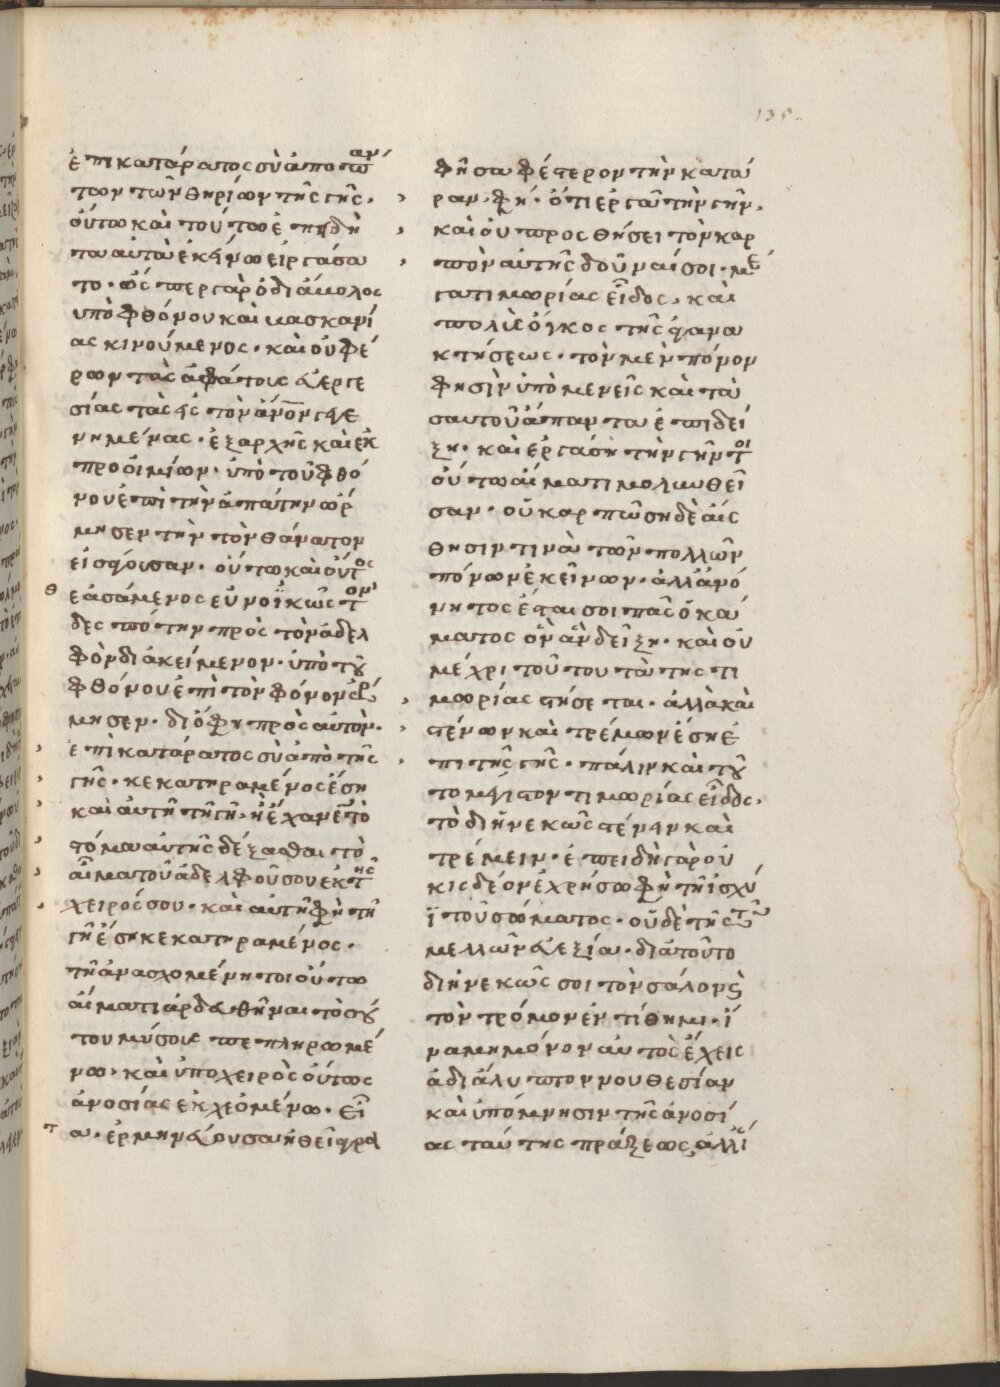 135
ἐπικατάρατος σὺ ἀπὸ παν
των τῶν θηρίων τῆς γῆς·
οὕτω καὶ τούτω ἐπειδὴ
τὰ αὐτὰ ἐκείνω εἰργάσα
το· ὥσπερ γὰρ ὁ διάβολος
ὑπὸ φθόνου καὶ βασκανί
ας κινούμενος· καὶ οὐ φέ
ρων τὰς ἀφάτους εὐεργε
σίας τὰς εἰς τὸν ἄνον γεγε
νημένας· ἐξ ἀρχῆς καὶ ἐκ
προοιμίων· ὑπὸ τοῦ φθό
νου ἐπὶ τὴν ἀπάτην ὥρ
μησεν τὴν τὸν θάνατον
εἰσφέρουσαν· οὕτω καὶ οὗτος
θεασάμενος εὐνοϊκῶς τὸν
δεσπότην πρὸς τὸν ἀδελ
φὸν διακείμενον· ὑπὸ τοῦ
φθόνου ἐπὶ τὸν φόνον ὥρ
μησεν· διό φη πρὸς αὐτὸν·
ἐπικατάρατος σὺ ἀπὸ τῆς
γῆς· κεκατηραμένος ἔση
καὶ αὐτῆ τῆ γῆ· ἣ ἔχανε τὸ
στόμα αὐτῆς δέξασθαι τὸ
αἷμα τοῦ ἀδελφοῦ σου ἐκ τῆς
χειρός σου· καὶ αὐτῆ φὴ τῆ
γῆ ἔση κεκατηραμένος·
τῆ ἀνασχομένη τοιούτω
αἵματι ἀρδευθῆναι τὸ οὕ
του μύσους πεπληρωμέ
νω· καὶ ὑπὸ χειρὸς οὕτως
ἀνοσίας ἐκχεόμενω· εἶ
τα ἑρμηνεύουσα ἡ θεία γρα
φὴ σαφέστερον τὴν κατά
ραν· φή· ὅτι ἐργᾶ τὴν γῆν·
καὶ οὐ προσθήσει τὸν καρ
πὸν αὐτῆς δοῦναί σοι· μέ
γα τιμωρίας εἶδος· καὶ
πολὺς ὄγκος τῆς ἀγανα
κτήσεως· τὸν μὲν πόνον
φησὶν ὑπομενεῖς καὶ τὰ
σαυτοῦ ἅπαντα ἐπιδεί
ξη· καὶ ἐργάση τὴν γῆν τοι
ούτω αἵματι μολυνθεῖ
σαν· οὐ καρπώση δὲ αἴσ
θησίν τινα τῶν πολλῶν
πόνων ἐκείνων· ἀλλ᾽ ἀνό
νητος ἔσται σοι πᾶς ὁ κά
ματος ὃν ἂν δείξη· καὶ οὐ
μέχρι τούτου τὰ τῆς τι
μωρίας στήσεται· ἀλλὰ καὶ
στένων καὶ τρέμων ἔση ἐ
πὶ τῆς γῆς· πάλιν καὶ τοῦ
το μέγιστον τιμωρίας εἶδος·
τὸ διηνεκῶς στένειν καὶ
τρέμειν· ἐπειδὴ γὰρ οὐ
κ εἰς δέον ἐχρήσω φὴ τῆ ἰσχύ
ϊ τοῦ σώματος· οὐδὲ τῆς τῶν
μελῶν εὐεξία· διὰ τοῦτο
διηνεκῶς σοι τὸν σάλον καὶ
τὸν τρόμον ἐντίθημι· ἵ
να μὴ μόνον αὐτὸς ἔχεις
ἀδιάλυπτον νουθεσίαν
καὶ ὑπόμνησιν τῆς ἀνοσί
ας ταύτης πράξεως, ἀλλ᾽ ἵ